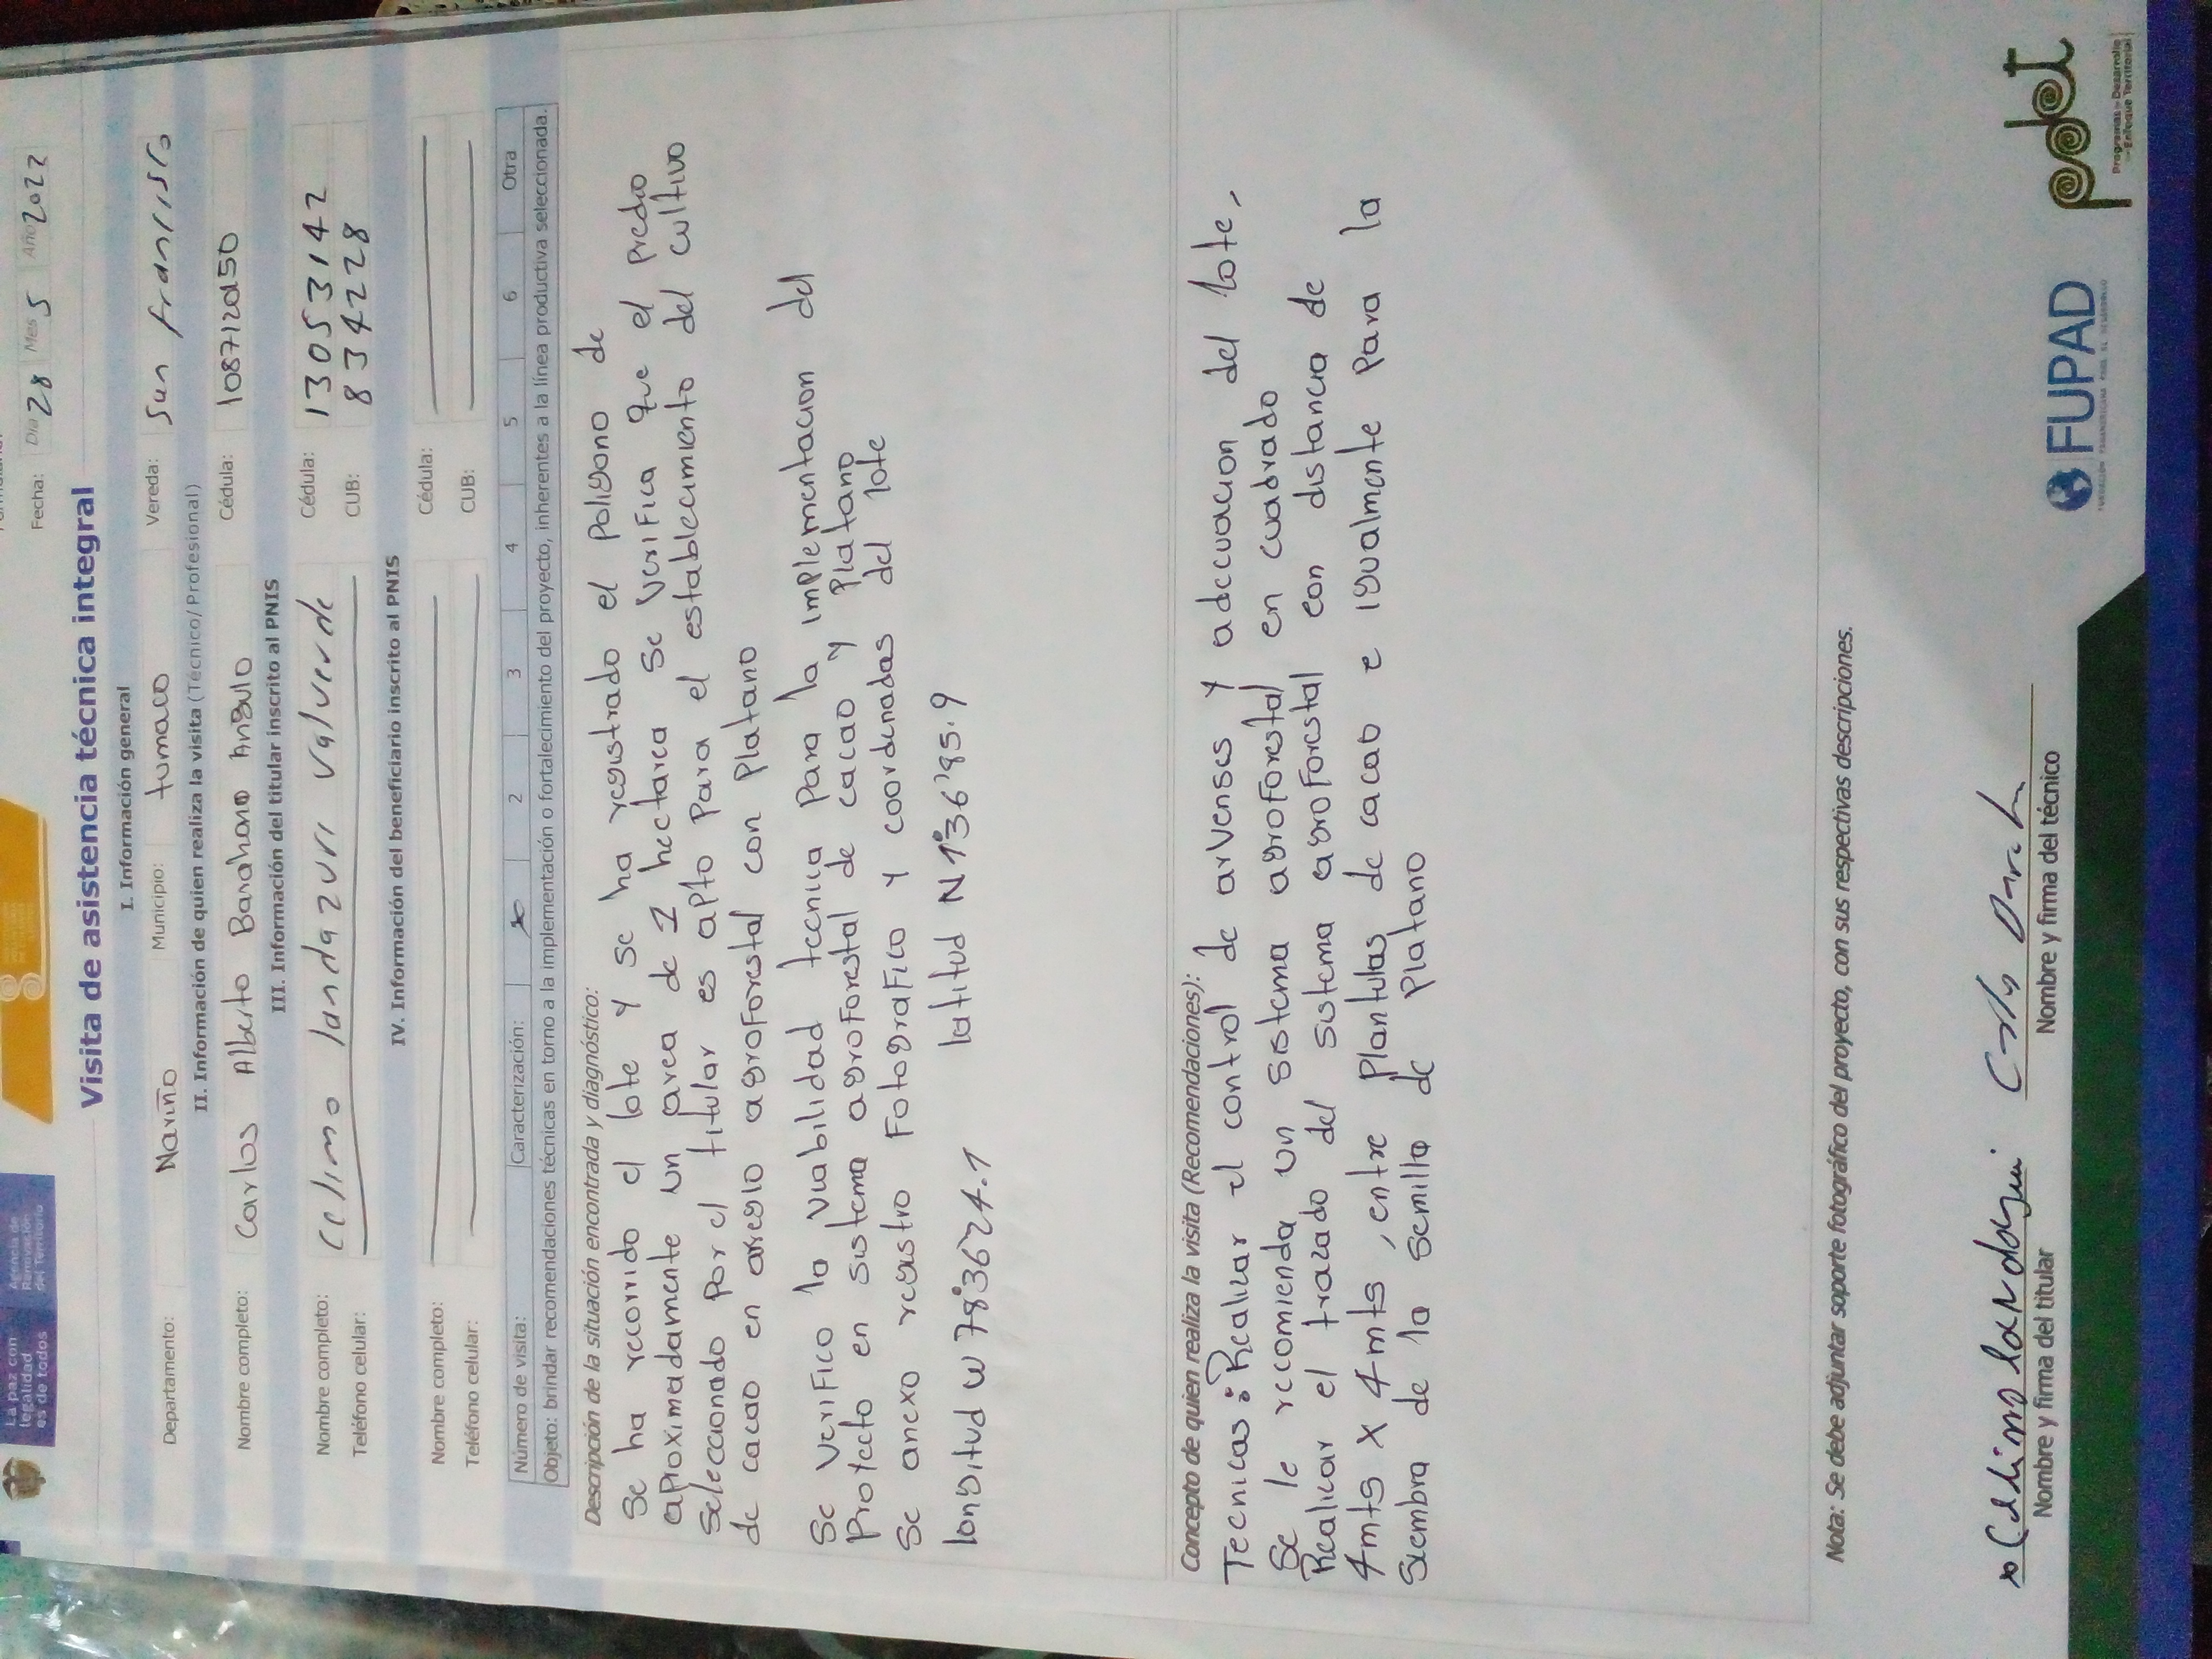 La paz con
legalidad
es de todos
Agencia de
Renovación
del Territorio
Fecha: Día 28 Mes 5 Año 2022
Visita de asistencia técnica integral
I. Información general
Departamento: Nariño Municipio: tumaco Vereda: San francisco
II. Información de quien realiza la visita (Técnico/Profesional)
Nombre completo: Carlos Alberto Barahona Angulo Cédula:
III. Información del titular inscrito al PNIS
Nombre completo: Celimo landazuri valverde Cédula: 13053142
Teléfono celular: CUB: 834228
IV. Información del beneficiario inscrito al PNIS
Nombre completo: Cédula:
Teléfono celular: CUB:
Número de visita: Caracterización: x 2 3 4 5 6 Otra
Objeto: brindar recomendaciones técnicas en torno a la implementación o fortalecimiento del proyecto, inherentes a la línea productiva seleccionada.
Descripción de la situación encontrada y diagnóstico:
Se ha recorrido el lote y se ha registrado el poligono de
aproximadamente un area de 1 hectarea Se verifica que el predio
seleccionado por el titular es apto para el establecimiento del cultivo
de cacao en arreglo agroforestal con platano
Se verifico la viabilidad tecnica para la implementacion del
Proyecto en sistema agroforestal de cacao y Platano
Se anexo registro Fotografico y coordenadas del lote
longitud W 78°3624.1 latitud N 1°36'85.9
Concepto de quien realiza la visita (Recomendaciones):
Tecnicas: Realizar el control de arvenses y adecuacion del lote,
Se le recomienda un sistema agroforestal en cuadrado
Realizar el trazado del sistema agroforestal con distancia de
4mts x 4mts, entre plantulas de cacao e igualmente para la
Siembra de la semilla de Platano
Nota: Se debe adjuntar soporte fotográfico del proyecto, con sus respectivas descripciones.
x Celimo landazuri
Nombre y firma del titular
Nombre y firma del técnico
FUPAD
pdet
Programas de Desarrollo
con Enfoque Territorial